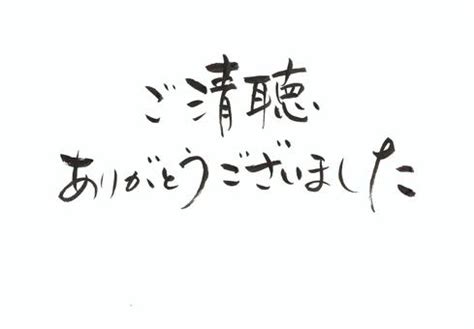 ご清聴
ありがとうございました